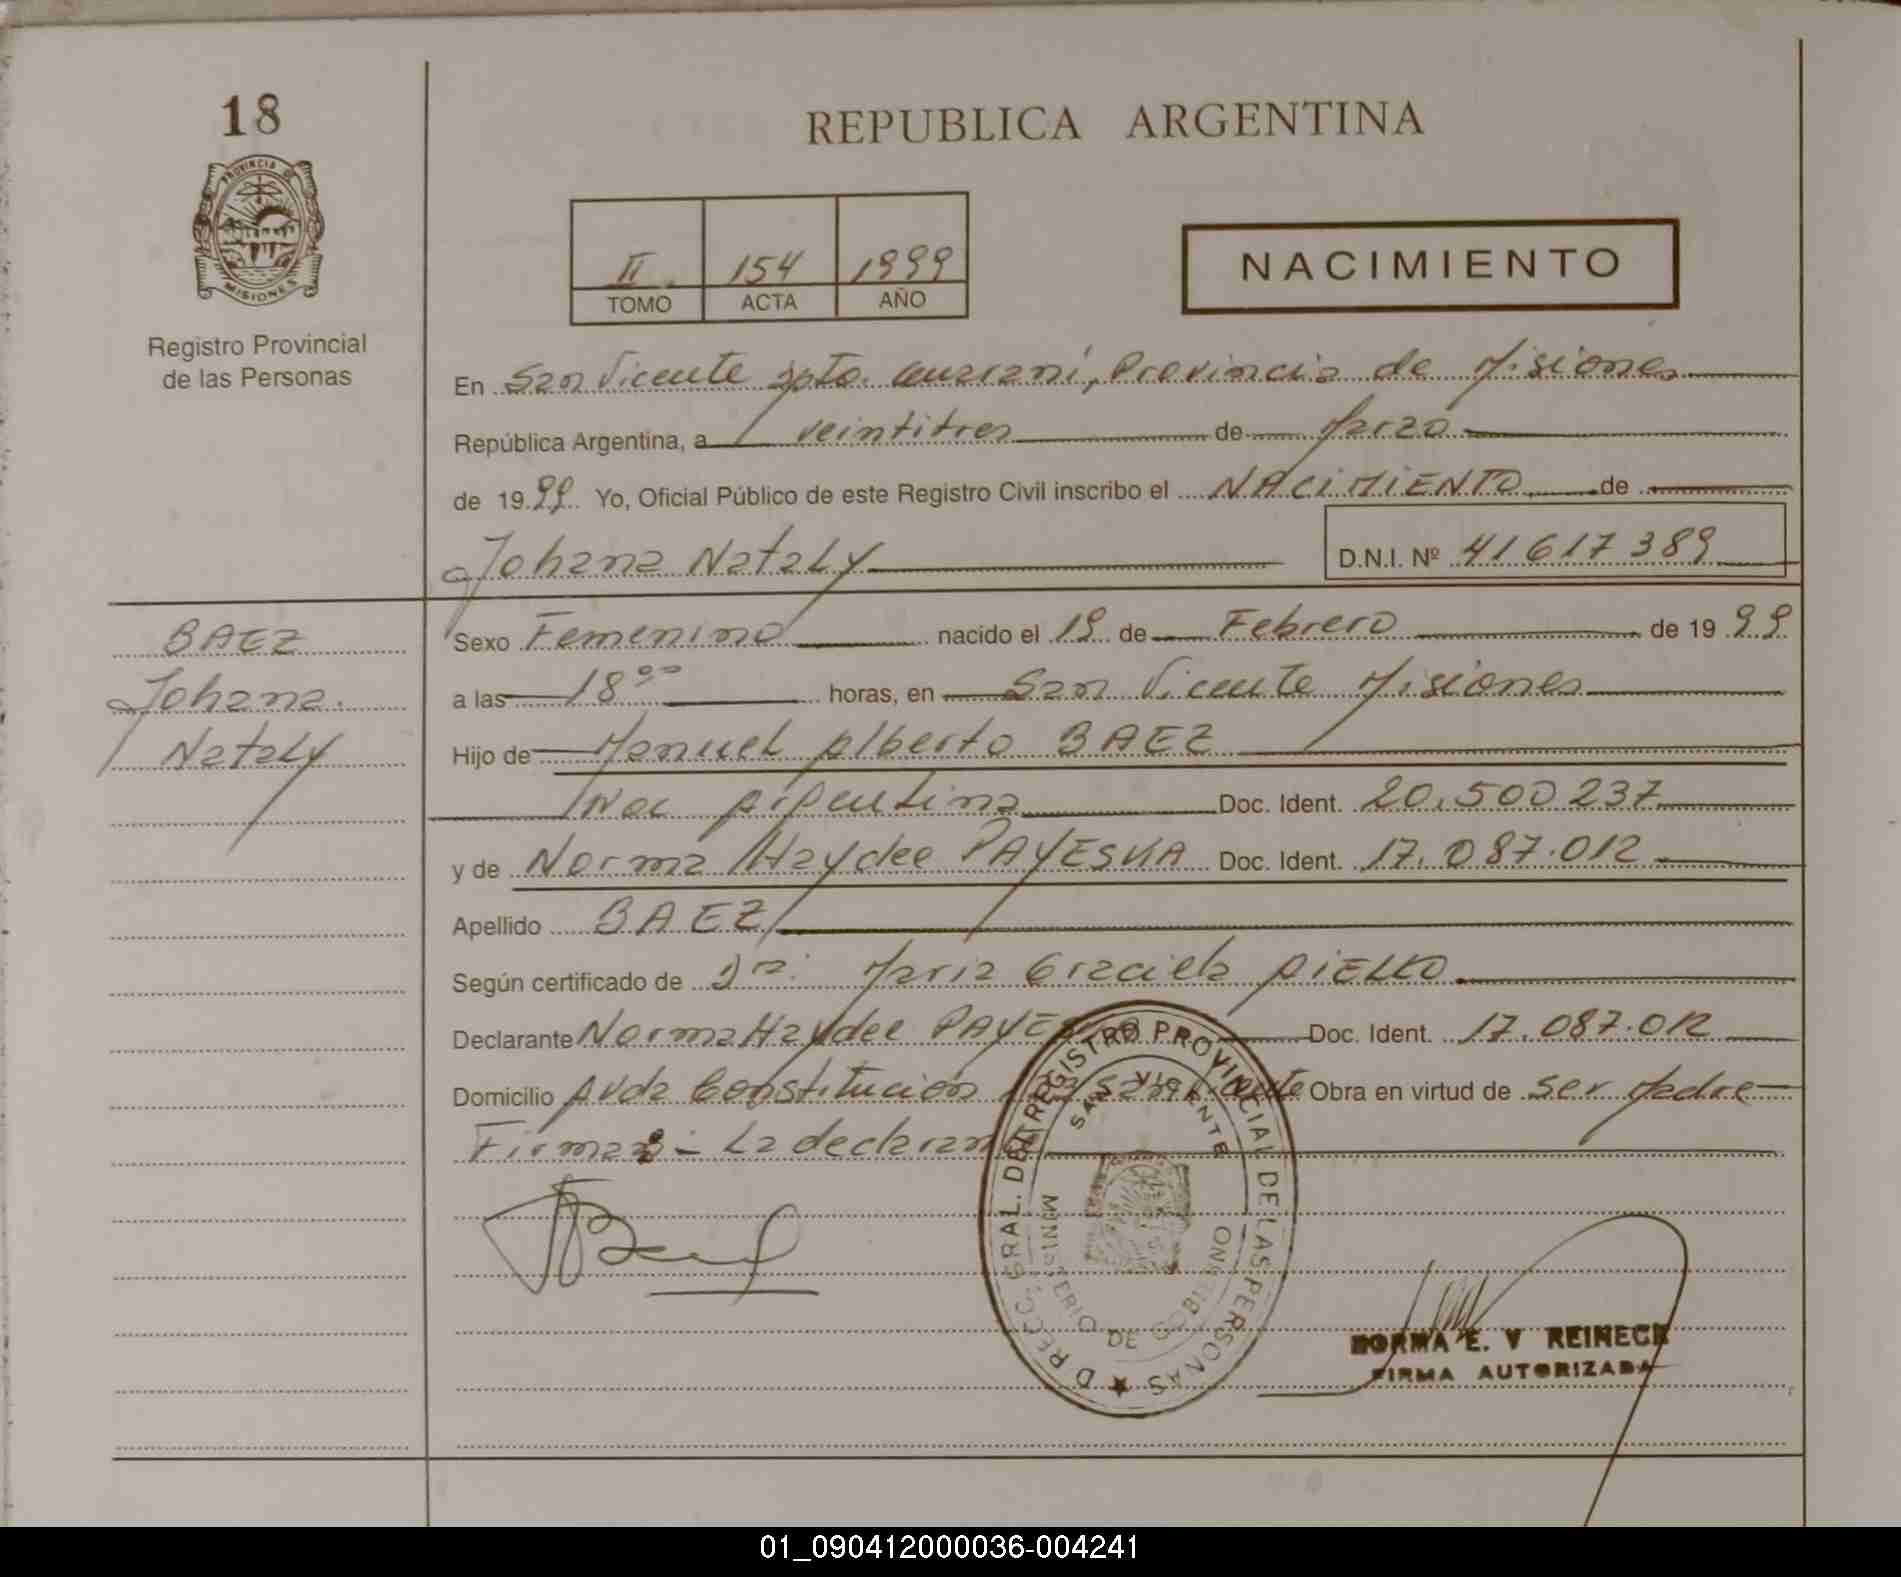 18
PROVINCIA DE
MISIONES
Registro Provincial
de las Personas
REPUBLICA ARGENTINA
II. 154 1999
TOMO ACTA AÑO
NACIMIENTO
En San Vicente Dpto. Guarani, Provincia de Misiones
República Argentina, a veintitres de Marzo
de 1999. Yo, Oficial Público de este Registro Civil inscribo el NACIMIENTO de
Johana Nataly
D.N.I. Nº 41617389
BAEZ
Johana
Nataly
Sexo Femenino nacido el 19 de Febrero de 1999
a las 18 horas, en San Vicente Misiones
Hijo de Manuel Alberto BAEZ
Nac Argentina Doc. Ident. 20.500.237
y de Norma Haydee PAYESKA Doc. Ident. 17.087.012
Apellido BAEZ
Según certificado de Dra. Maria Graciela AIELLO
Declarante Norma Haydee Doc. Ident. 17.087.012
Domicilio Avda Constitución Obra en virtud de ser Madre
Firma: La declarante
DIRECC. GRAL. DEL REGISTRO PROVINCIAL DE LAS PERSONAS
SAN VICENTE
MINISTERIO DE GOBIERNO
NORMA E. V REINECK
FIRMA AUTORIZADA
01_090412000036-004241